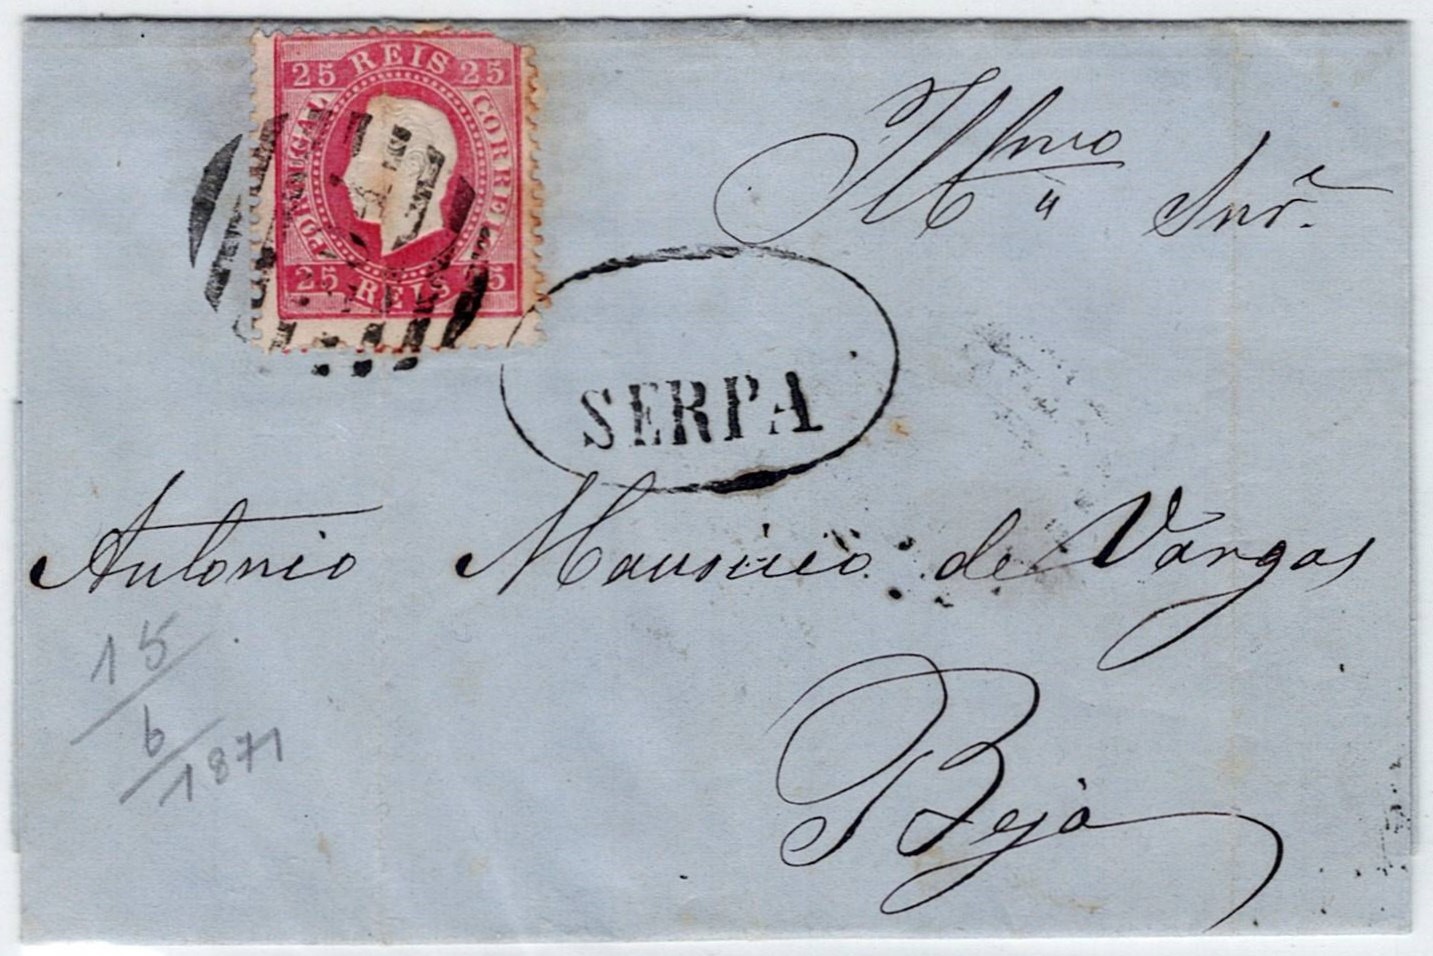 25 REIS 25
PORTUGAL
CORREIO
25 REIS 25
Illmo Snr.e
SERPA
Antonio Mauricio de Vargas
15/6/1871
Beja